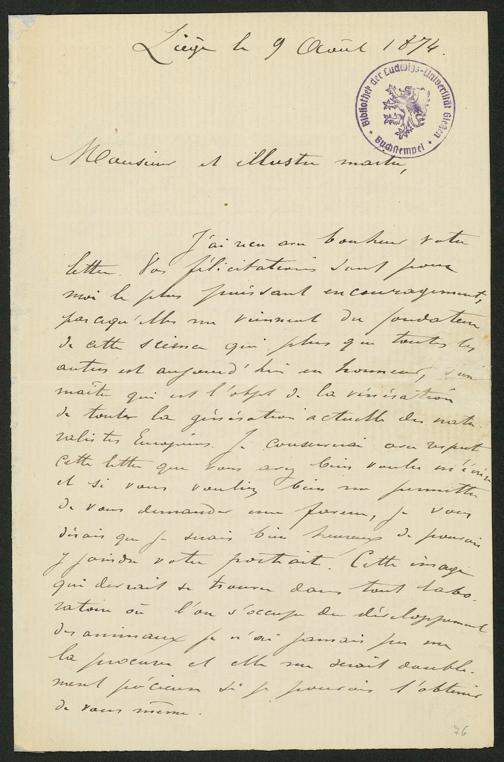 Liège le 9 Août 1874.
Bibliothek der Ludwigs-Universität Giessen
Buchstempel
Monsieur et illustre maître,
J'ai reçu avec bonheur votre
lettre. Vos félicitations sont pour
moi le plus puissant encouragement,
parcequ'elles me viennent du fondateur
de cette science qui plus que toutes les
autres est aujourd'hui en honneur, d'un
maître qui est l'objet de la vénération
de toute la génération actuelle des natu
ralistes Européens. Je conserverai avec respect
cette lettre que vous avez bien voulu m'écrire
et si vous vouliez bien me permettre
de vous demander une faveur, je vous
dirais que je serais bien heureux de pouvoir
y joindre votre portrait. Cette image
qui devrait se trouver dans tout labo-
ratoire où l'on s'occupe du développement
des animaux je n'ai jamais pu me
la procurer et elle me serait double-
ment précieuse si je pouvais l'obtenir
de vous même.
76